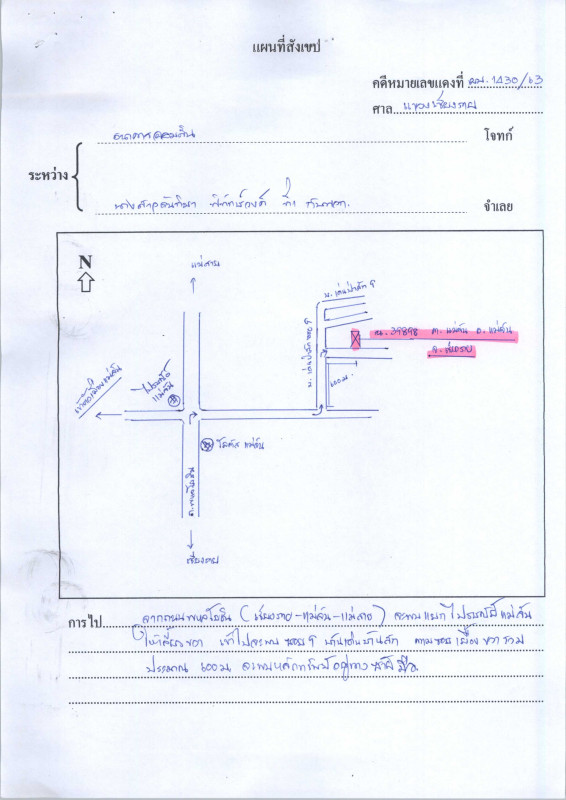 แผนที่สังเขป
คดีหมายเลขแดงที่ ผบ. 1430/63
ศาล แขวงเชียงราย
ธนาคารออมสิน โจทก์
ระหว่าง
ที่ 1 กับพวก จำเลย
N
แม่สาย
ไปรษณีย์
แม่จัน
โลตัส แม่จัน
ถ.พหลโยธิน
เชียงราย
600 ม.
ฉ. 39898 ต. แม่จัน อ. แม่จัน
จ. เชียงราย
การไป จากถนนพหลโยธิน (เชียงราย-แม่จัน-แม่สาย) จะพบแยกไปรษณีย์แม่จัน
ให้เลี้ยวขวา เข้าไปจะพบ ซอย 9 ตามซอย เยื้อง ขวา รวม
ประมาณ 600 ม. จะพบหลักทรัพย์อยู่ทางซ้ายมือ